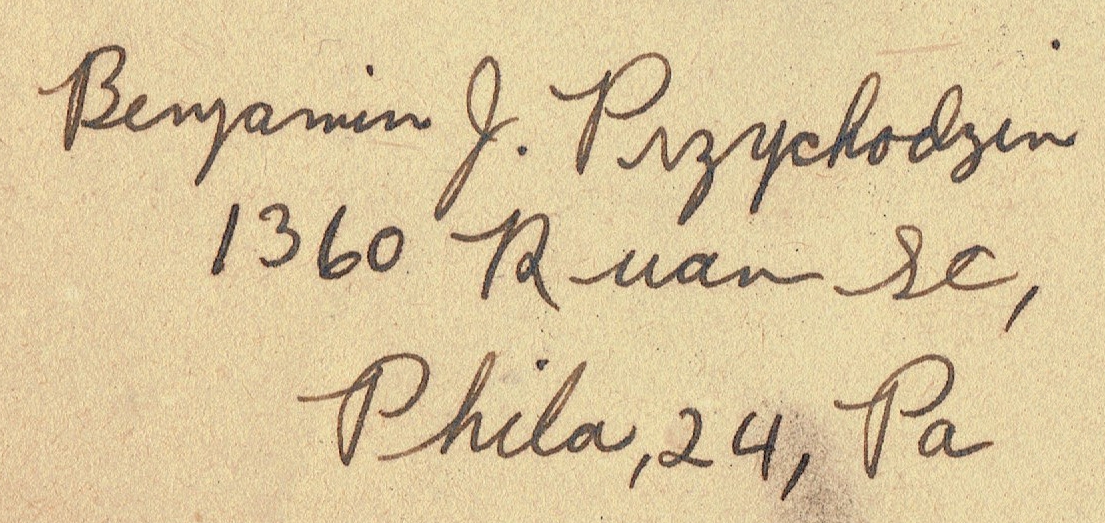 Benjamin J. Przychodzin
1360 Ruan St,
Phila, 24, Pa